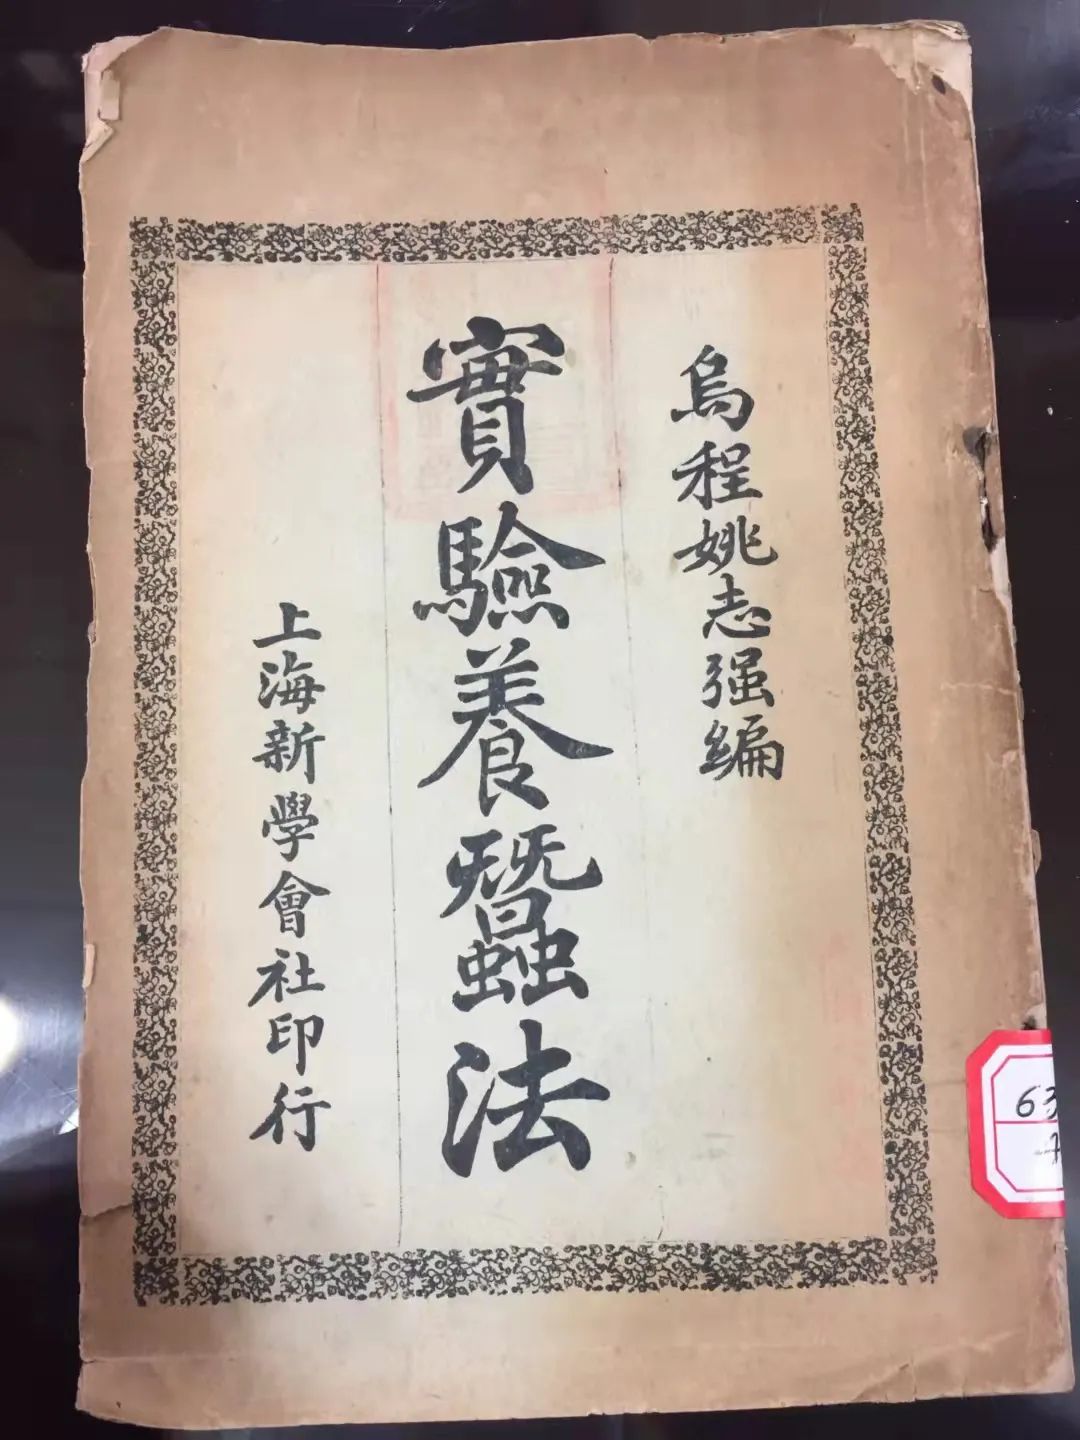 烏程姚志强編
實驗養蠶法
上海新學會社印行
63